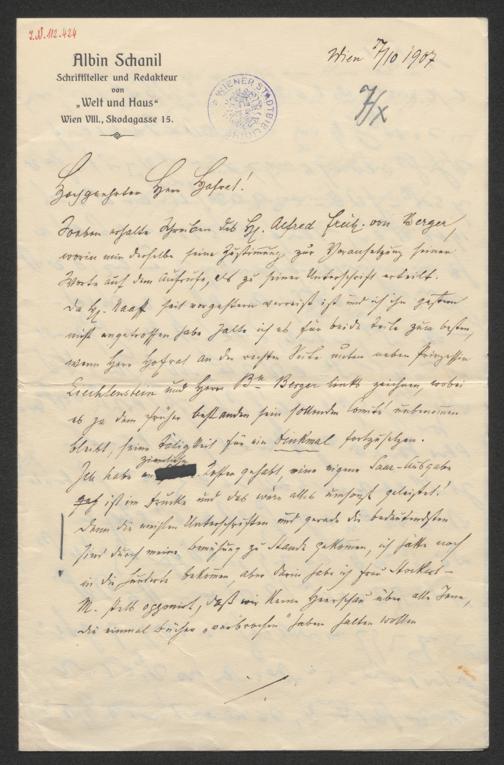 I.N. 112.424
Albin Schanil
Schriftsteller und Redakteur
von
„Welt und Haus“
Wien VIII., Skodagasse 15.
Wien 7/10 1907
WIENER STADTBIBLIOTHEK
7/X
Hochgeehrter Herr Hofrat!
Soeben erhalte Schreiben des H. Alfred Freih. von Berger,
worin mir derselbe seine Zustimmung zur Voransetzung seiner
Worte auf dem Aufrufe, als zu seiner Unterschrift erteilt.
Da H. Naaff seit vorgestern verreist ist und ich ihn gestern
nicht angetroffen habe halte ich es für beide Teile zum besten,
wenn Herr Hofrat an der rechten Seite unten neben Prinzessin
Liechtenstein und Herrn Bn Berger links zeichnen, wobei
es ja dem früher bestanden sein sollenden Comité unbenommen
bleibt, seine Tätigkeit für ein Denkmal fortzusetzen.
Ich habe ziemliche Kosten gehabt eine eigene Saar-Ausgabe
ist im Drucke und das wäre alles umsonst geleistet!
Denn die meisten Unterschriften und gerade die bedeutendsten
sind durch meine Bemühung zu Stande gekommen, ich hätte noch
in die Hunderte bekommen, aber darin habe ich Frau
M. opponiert, daß wir keine Heerschau über alle Jene,
die einmal Bücher „verbrochen“ haben halten wollen